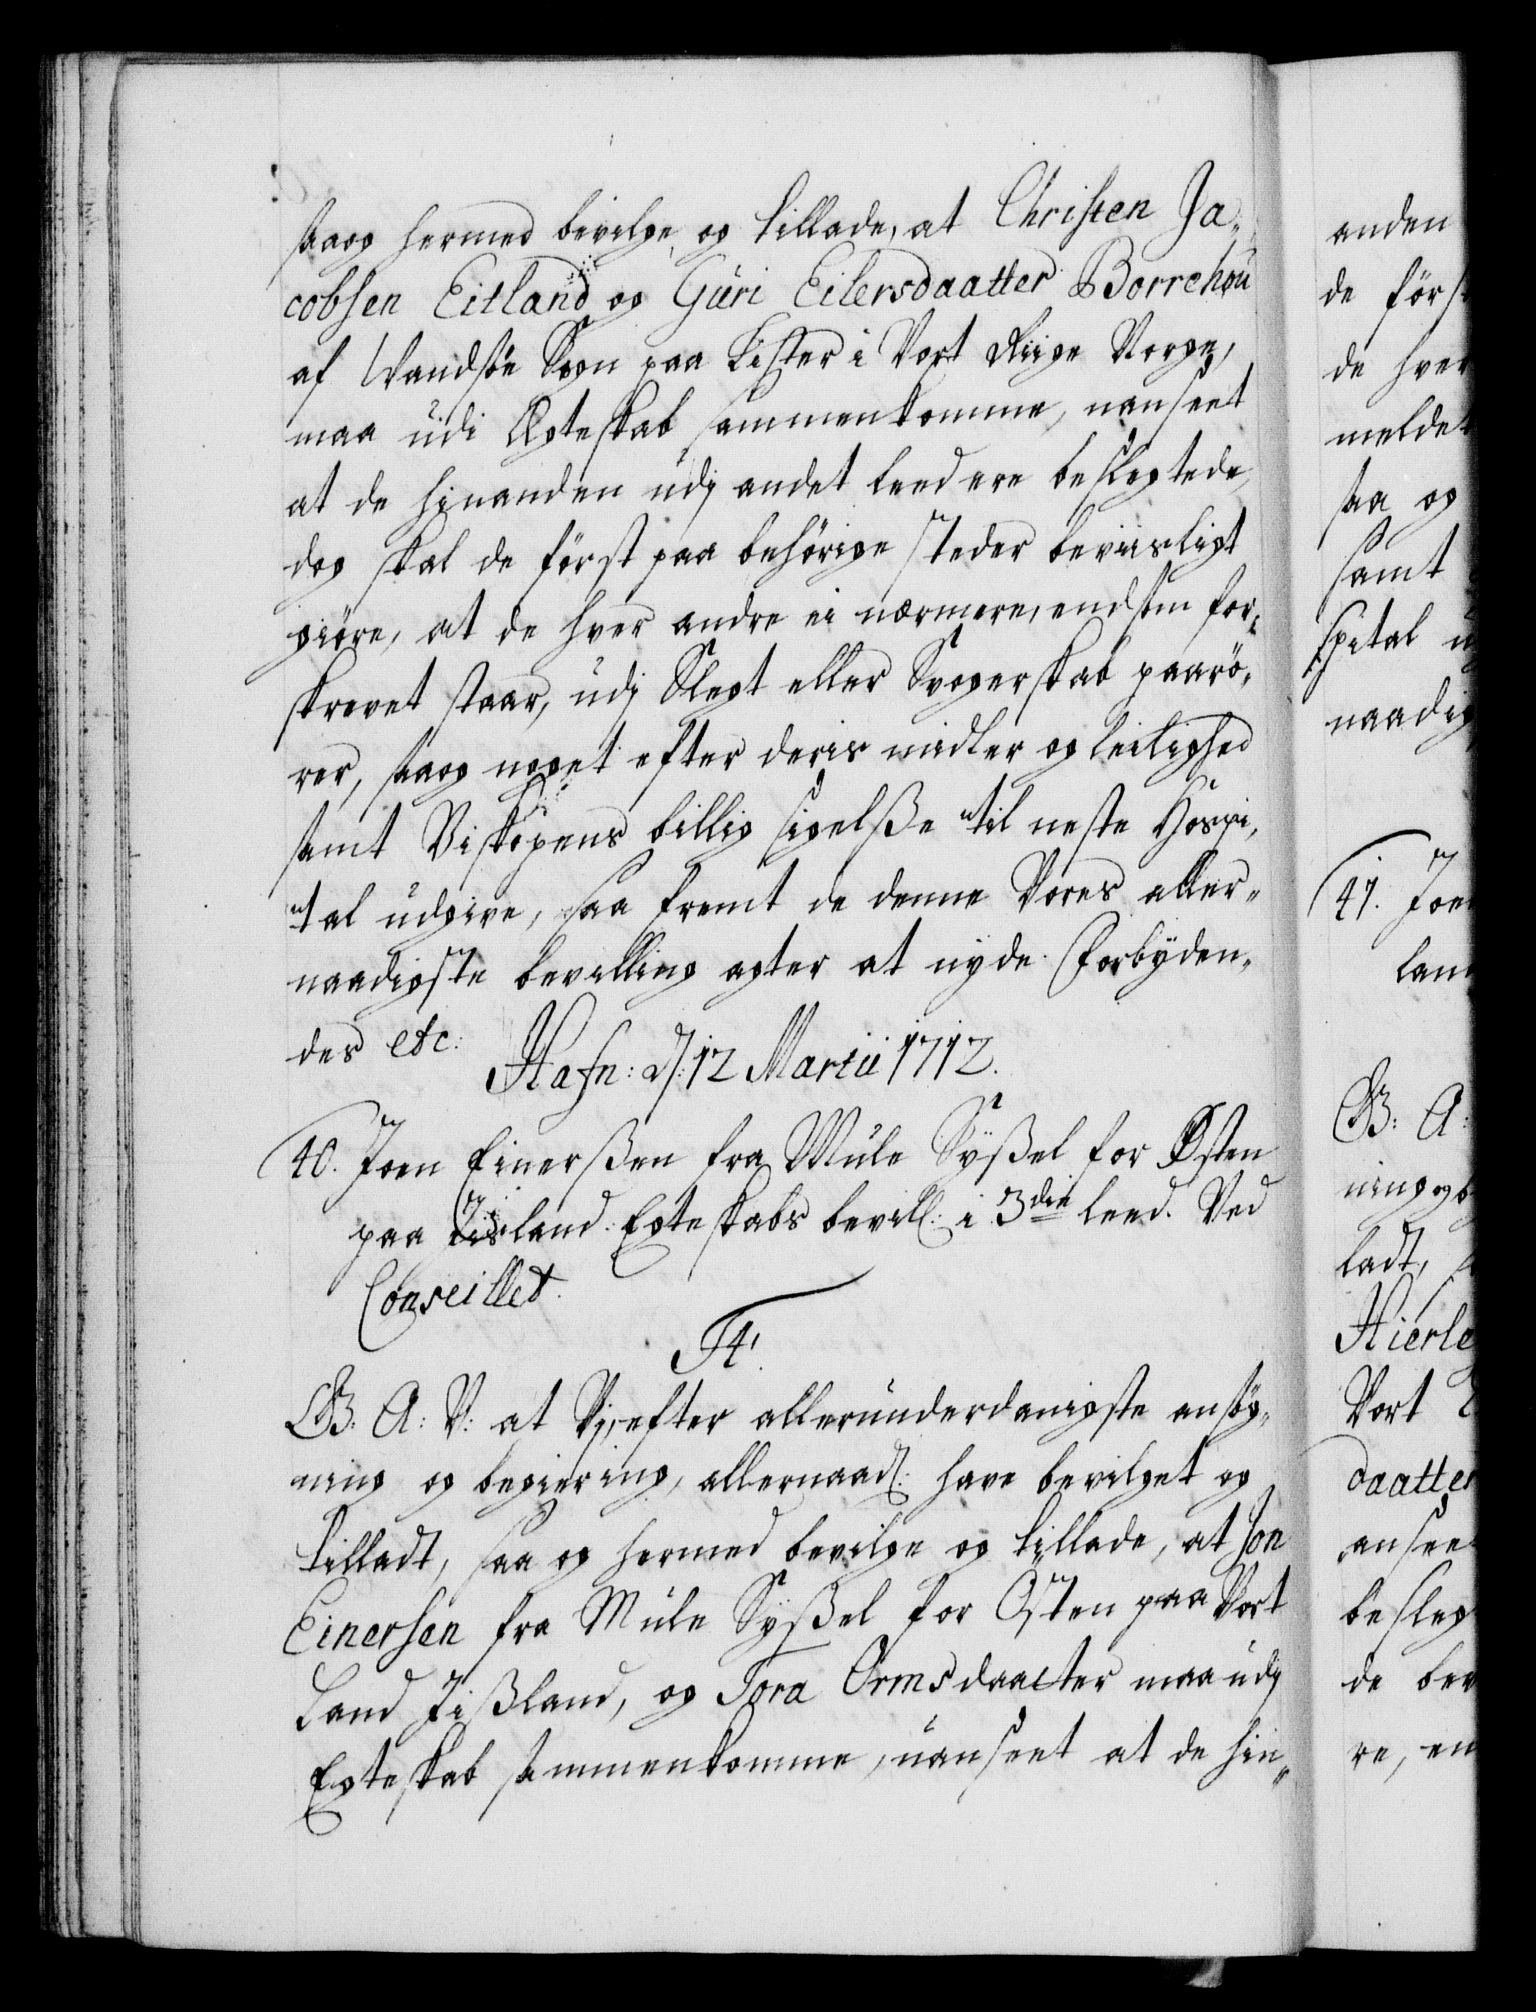 saaog hermed bevilge og tillade, at Christen Ja-
cobsen Eitland og Gúri Eilersdaatter Borrehoú
af Vandsöe Sogn paa Lister i Vort Riige Norge,
maa údi Egteskab sammenkomme, uanseet
at de hinanden udj andet leed ere beslegtede,
dog skal de först paa behörige steder beviisligt
giöre, at de hver andre ei nærmere, end som for-
skrevet staar, udj Slegt eller Svogerskab paarö-
rer, saaog noget efter deris midler og leilighed
samt Biskopens billig sigelße til neste Hospi-
tal udgive, saa fremt de denne Vores aller-
naadigste bevilling agter at nyde. Forbyden-
des etc:
Hafn: d: 12 Martii 1712.
40. Joen Einerßen fra Múle Syßel for Østen
paa Iisland: Egteskabs bevil: i 3die leed. Ved
Conseillet.
F4.
G: A: V: at Vj, efter allerúnderdanigste ansög-
ning og begiering, allernaad: have bevilget og
tilladt, saa og hermed bevilge og tillade, at Jon
Einersen fra Múle Syßel for Östen paa Vort
Land Iißland, og Tora Ormsdaatter maa údj
Egteskab sammenkomme, úanseet at de hin-
anden
de först
de hver
meldet
saa og
samt
spital ú
naadig
41. Joen
lan
G: A:
ning og b
ladt, s
Hierle
Vort
daatter
ansee
besleg
de bev
re, en